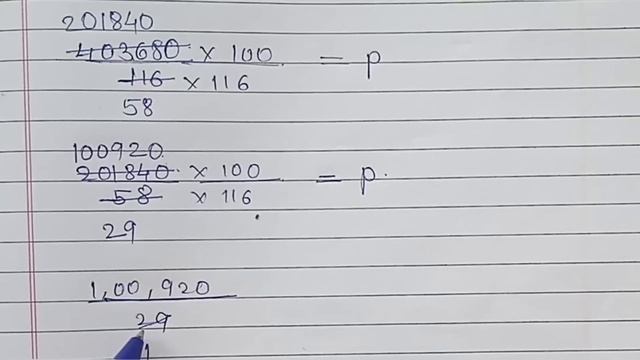 201840
403680 × 100 = p
116 × 116
58
100920
201840 × 100 = p.
58 × 116
29
1,00,920
29
1